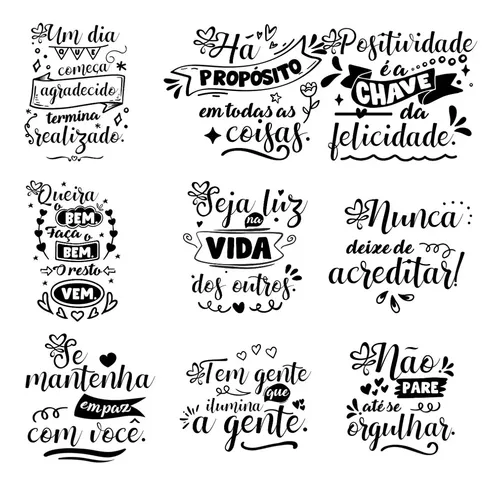 Um dia
QUE
começa
agradecido
termina
realizado.
Há
PROPÓSITO
em todas as
coisas.
Positividade
é a
CHAVE
da
felicidade.
Queira
o BEM.
Faça o
BEM.
O resto
VEM.
Seja luz
na
VIDA
dos outros.
Nunca
deixe de
acreditar!
Se
mantenha
em paz
com você.
Tem gente
que
ilumina
a gente.
Não
PARE
até se
orgulhar.